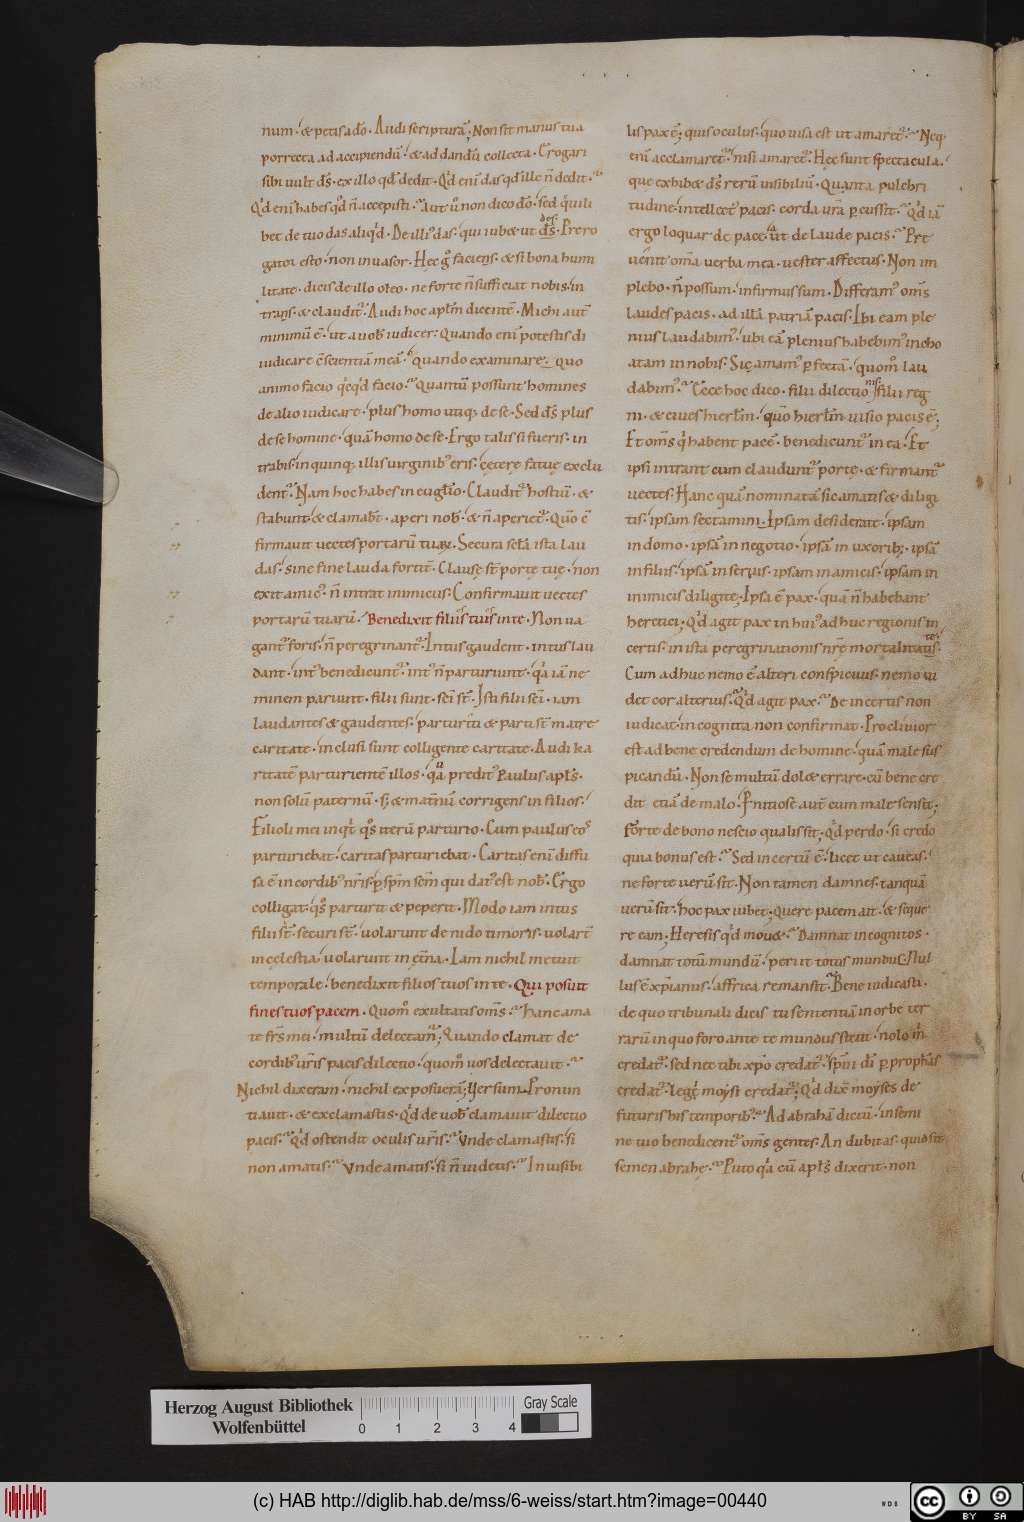 num. & petis ad dõ. Audi scripturã; Non sit manus tua
porrecta ad accipiendũ. & ad dandũ collecta. Erogari
sibi uult d̃s. ex illo qđ dedit. Qđ enĩ das qđ ille ñ dedit.
Qđ enĩ habes qđ ñ accepisti. Aut ů non dico dõ. sed q̃rili
bet de tuo das aliqđ. De illiˀ das. qui iub& ut d̃s. Prero
gator esto. non inuasor. Hec g̊ faciens. & si bona humi
litate. dicis de illo oleo. ne forte ñ sufficiat nobis. in
trans. & claudit̃. Audi hoc apl̃m dicentẽ. Michi aut̃
minimũ ẽ. ut a uob̃ iudicer: Quando enĩ potestis di
iudicare c̃scientiã meã. quando examinare. quo
animo facio qđqđ facio. Quantũ possunt homines
de alio iudicare. plus homo utiq; de se. Sed d̃s plus
de se homine. quã homo de se. Ergo talis si fueris. in
trabis. in quinq; illis uirginibˀ eris. cętere fatuę exclu
dent̃. Nam hoc habes in eug̃lio. Claudit̃ hostiũ. &
stabunt. & clamab̃t. aperi nob̃. & ñ aperiet̃. Quõ ẽ
firmauit uectes portarũ tuaꝝ. Secura sc̃la ista lau
das. sine fine lauda fortit̃. Clausę st̃ portę tuę. non
exit amicˀ. ñ intrat inimicus. Confirmauit uectes
portarũ tuarũ. Benedixit filiis tuis in te. Non ua
gant̃ foris. ñ peregrinant̃. Intus gaudent. intus lau
dant. int̃ benedicunt̃. int̃ ñ parturiunt. qã iã ne
minem pariunt. filii sunt. sc̃i st̃. Isti filii sc̃i. iam
laudantes & gaudentes. parturiti & parti st̃ matre
caritate. inclusi sunt colligente caritate. Audi ka
ritatẽ parturientẽ illos. q̃a predit̃ Paulus apl̃s.
non solũ paternũ. s; & mat̃nũ corrigens in filios.
Filioli mei inqt̃ q̊s iterũ parturio. Cum paulus eos
parturiebat. caritas parturiebat. Caritas enĩ diffu
sa ẽ in cordibˀ nr̃is. ꝑ sp̃m sc̃m qui datˀ est nob̃. Ergo
colligat. q̊s parturit & peperit. Modo iam intus
filii st̃. securi st̃. uolarunt de nido timoris. uolar̃t
in cęlestia. uolarunt in ęt̃na. Iam nichil metuit
temporale. benedixit filios tuos in te. Qui posuit
fines tuos pacem. Quom̃ exultatis om̃s. hanc ama
te fr̃s mei. multũ delectam̃; Quando clamat de
cordibˀ ur̃is pacis dilectio. quom̃ uos delectauit.
Nichil dixeram. nichil exposuerã; Uersum Pronun
tiauit. & exclamastis. Qđ de uob̃ clamauit dilectio
pacis. Qđ ostendit oculis ur̃is. Unde clamastis. si
non amatis. Unde amatis. si ñ uidetis. Inuisibi
lis pax ẽ; quis oculus. quo uisa est ut amaret̃. Neq;
enĩ acclamaret̃. nisi amaret̃. Hęc sunt spectacula.
que exhib& d̃s rerũ inuisibiliũ. Quanta pulchri
tudine. intellect̃ pacis. corda ur̃a ꝑcussit. Qđ iã
ergo loquar de pace. ut de laude pacis. Prę
uenit om̃a uerba mea. uester affectus. Non im
plebo. ñ possum. infirmus sum. Differamˀ om̃s
laudes pacis. ad illã patriã pacis. Ibi eam ple
nius laudabimˀ. ubi eã plenius habebimˀ incho
atam in nobis. Sic amamˀ ꝑfectã. quom̃ lau
dabimˀ. Ecce hoc dico. filii dilectionis filii reg
ni. & ciues hierl̃m. quõ hierl̃m uisio pacis ẽ;
Et om̃s qi habent pacẽ. benedicunt̃ in ea. Et
ipsi intrant cum claudunt̃ portę. & firmant̃
uectes. Hanc quã nominatã sic amatis & diligi
tis. ipsam sectamini. Ipsam desiderate. ipsam
in domo. ipsã in negotio. ipsã in uxoribˀ. ipsã
in filiis. ipsã in seruis. ipsam in amicis. ipsam in
inimicis diligite; Ipsa ẽ pax. quã ñ habebant
heretici; Qđ agit pax in huiˀ adhuc regionis in
certis. in ista peregrinationis nr̃e mortalitatis.
Cum adhuc nemo ẽ alteri conspicuus. nemo ui
det cor alterius. Qđ agit pax. De incertis non
iudicat. incognita non confirmat. Procliuior
est ad bene credendum de homine. quã male sus
picandũ. Non se multũ dol& errare. cũ bene cre
dit etiã de malo. Pnitiose aut̃ cum male sensit;
Forte de bono nescio qualis sit; Qđ perdo. si credo
quia bonus est. Sed incertũ ẽ. licet ut caueas.
ne forte uerũ sit. Non tamen damnes. tanquã
uerũ sit. hoc pax iubet; Quere pacem ait. & seque
re eam; Heresis qđ mou&. Damnat incognitos.
damnat totũ mundũ. periit totus mundus. Nul
lus ẽ xp̃ianus. affrica remansit. Bene iudicasti.
de quo tribunali dicis tu sententiã in orbe ter
rarũ in quo foro ante te mundus stetit. nolo m̃
credat̃. sed nec tibi xp̃o credat̃. sp̃ui dĩ ꝑ proph̃as
credat̃. legi moysi credat̃; Qđ dix̃ moyses de
futuris his temporibˀ. Ad abrahã dictũ. in semi
ne tuo benedicent̃ om̃s gentes. An dubitas. quod sit
semen abrahę. Puto qã cũ apl̃s dixerit. non
Herzog August Bibliothek
Wolfenbüttel
0 1 2 3 4
Gray Scale
(c) HAB http://diglib.hab.de/mss/6-weiss/start.htm?image=00440
WDB
cc BY SA